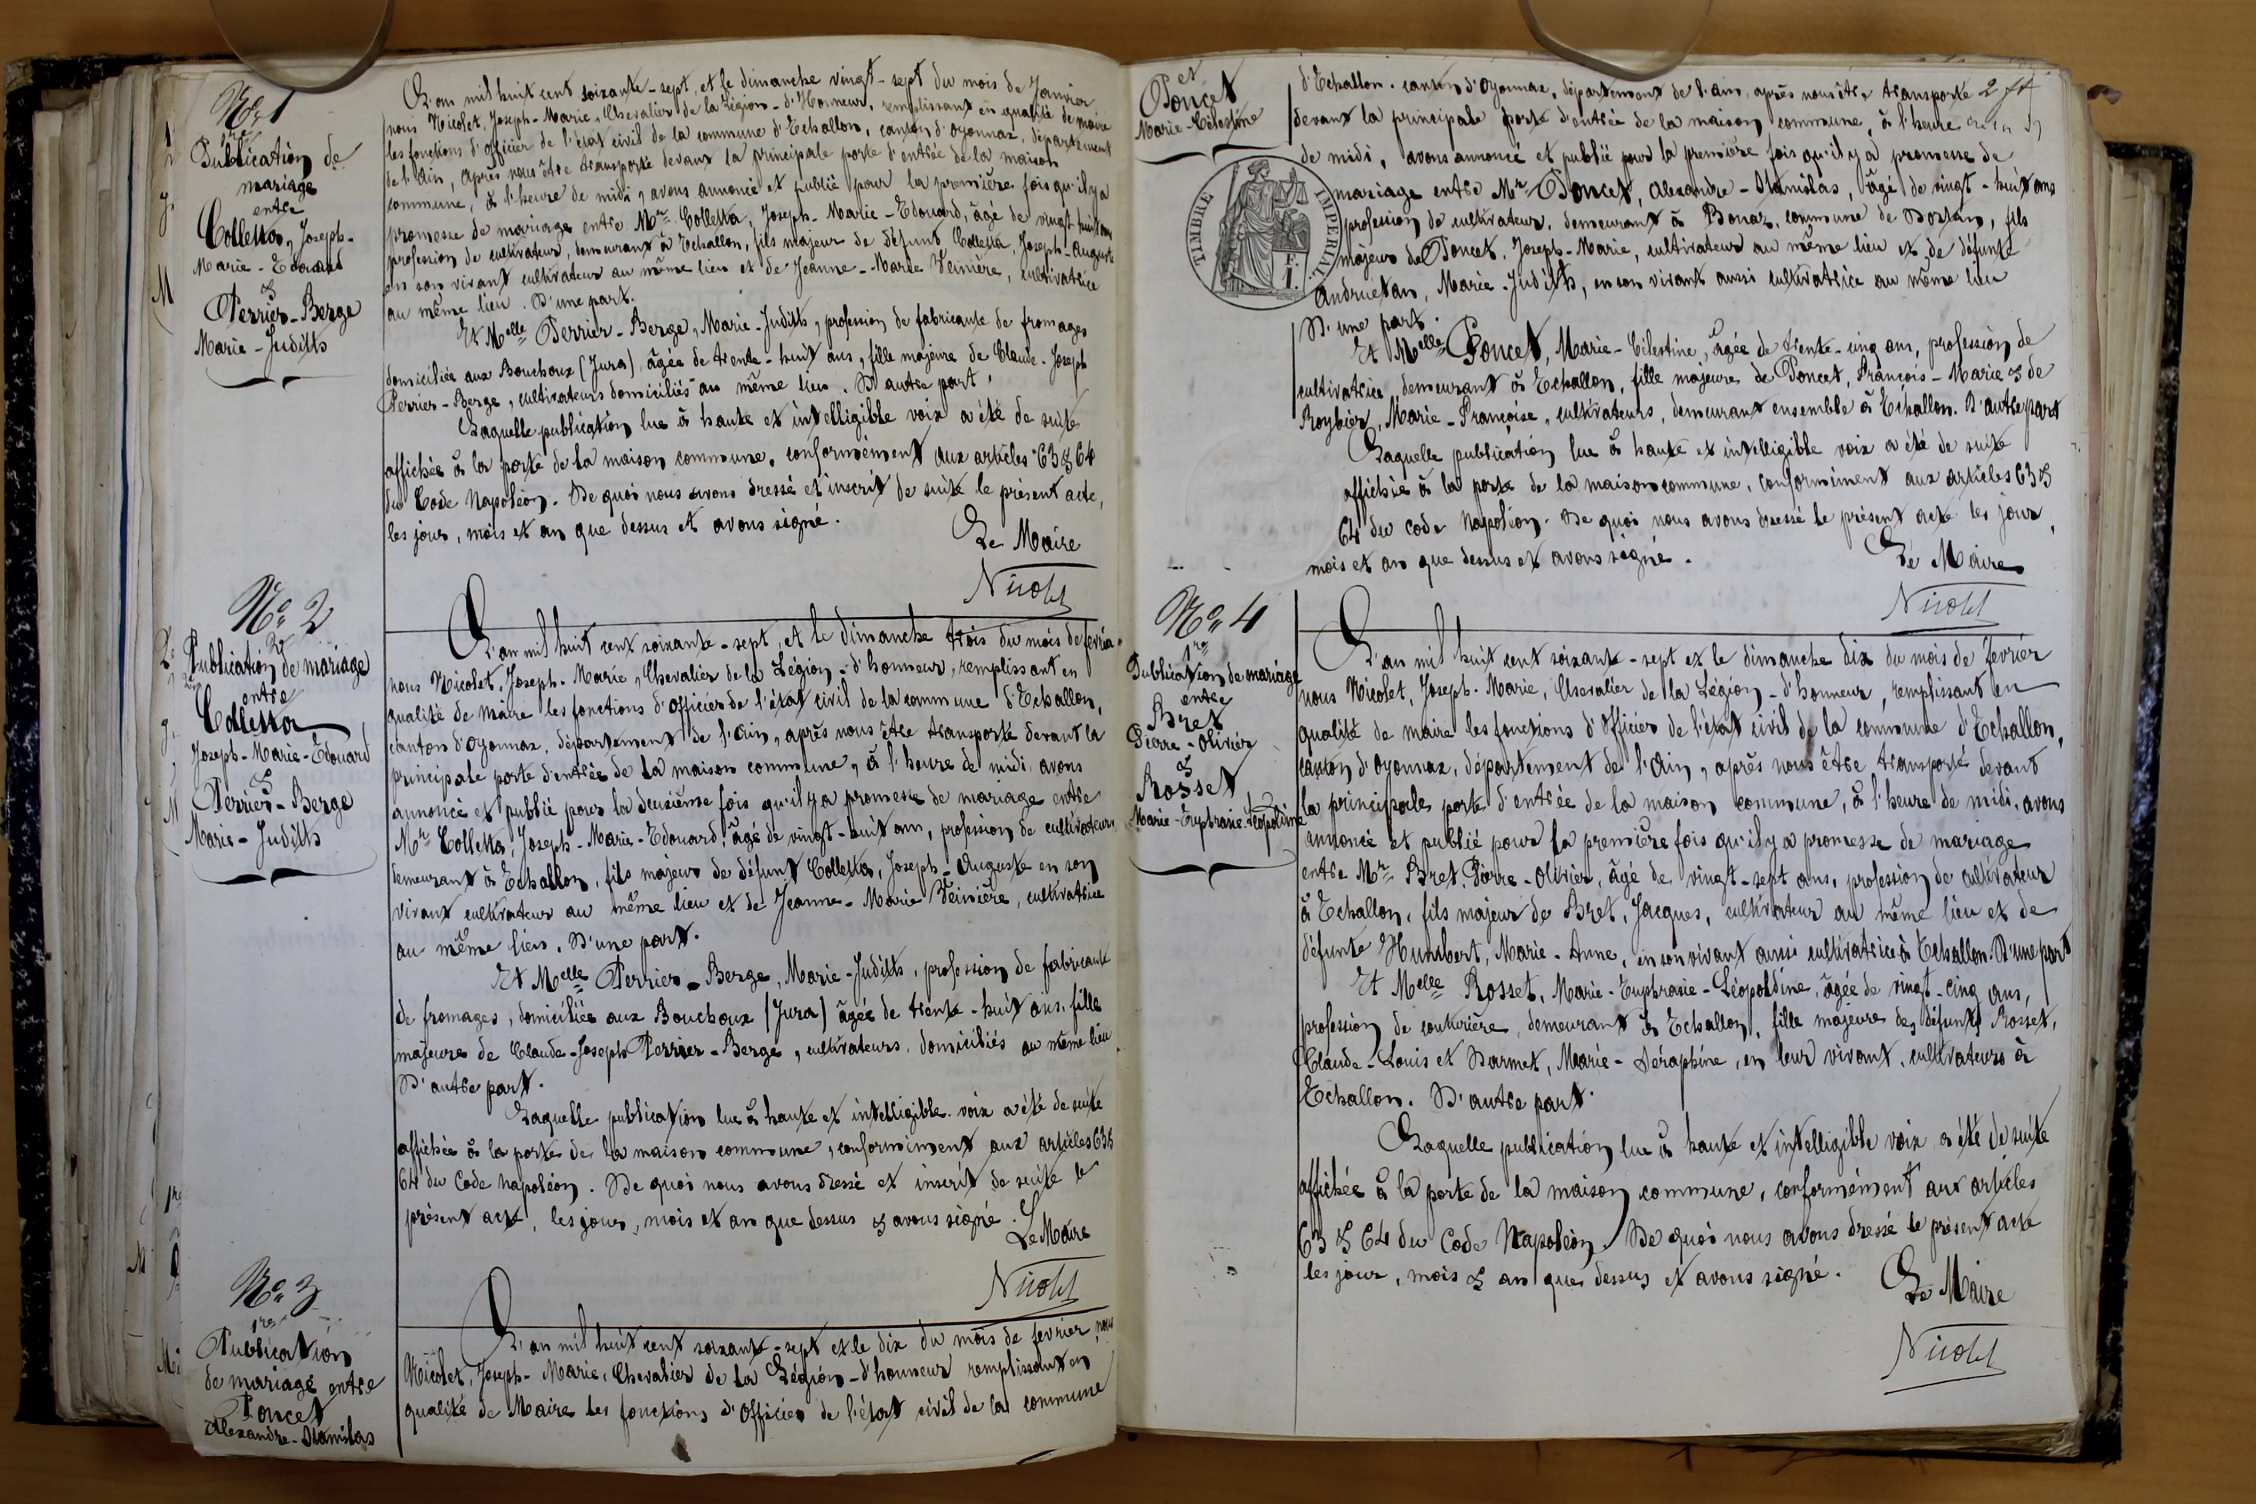 No 1
1re
Publication de
mariage
entre
Colletta, Joseph-
Marie-Edouard
&
Perrier-Berge
Marie-Judith
L'an mil huit cent soixante-sept, et le dimanche vingt-sept du mois de Janvier
nous Nicolet, Joseph-Marie, Chevalier de la Légion-d'Honneur, remplissant en qualité de maire
les fonctions d'officier de l'état civil de la commune d'Echallon, canton d'Oyonnax, département
de l'Ain, après nous être transporté devant la principale porte d'entrée de la maison
commune, à l'heure de midi, avons annoncé et publié pour la première fois qu'il y a
promesse de mariage entre Mr Colletta, Joseph-Marie-Edouard, âgé de vingt-huit ans
profession de cultivateur, demeurant à Echallon, fils majeur de défunt Colletta, Joseph-Auguste
en son vivant cultivateur au même lieu et de Jeanne-Marie Veinière, cultivatrice
au même lieu. D'une part.
Et Melle Perrier-Berge, Marie-Judith, profession de fabricante de fromages
domiciliée aux Bouchoux (Jura), âgée de trente-huit ans, fille majeure de Claude-Joseph
Perrier-Berge, cultivateurs domiciliés au même lieu. D'autre part.
Laquelle publication lue à haute et intelligible voix a été de suite
affichée à la porte de la maison commune, conformément aux articles 63 & 64
du Code Napoléon. De quoi nous avons dressé et inscrit de suite le présent acte,
les jour, mois et an que dessus et avons signé.
Le Maire
Nicolet
No 2
2e
Publication de mariage
entre
Colletta
Joseph-Marie-Edouard
&
Perrier-Berge
Marie-Judith
L'an mil huit cent soixante-sept, et le dimanche trois du mois de février
nous Nicolet, Joseph-Marie, Chevalier de la Légion-d'honneur, remplissant en
qualité de maire les fonctions d'officier de l'état civil de la commune d'Echallon,
canton d'Oyonnax, département de l'Ain, après nous être transporté devant la
principale porte d'entrée de la maison commune, à l'heure de midi, avons
annoncé et publié pour la deuxième fois qu'il y a promesse de mariage entre
Mr Colletta, Joseph-Marie-Edouard, âgé de vingt-huit ans, profession de cultivateur
demeurant à Echallon, fils majeur de défunt Colletta, Joseph-Auguste en son
vivant cultivateur au même lieu et de Jeanne-Marie Veinière, cultivatrice
au même lieu. D'une part.
Et Melle Perrier-Berge, Marie-Judith, profession de fabricante
de fromages, domiciliée aux Bouchoux (Jura) âgée de trente-huit ans, fille
majeure de Claude-Joseph Perrier-Berge, cultivateurs, domiciliés au même lieu
D'autre part.
Laquelle publication lue à haute et intelligible voix a été de suite
affichée à la porte de la maison commune, conformément aux articles 63 &
64 du Code Napoléon. De quoi nous avons dressé et inscrit de suite le
présent acte, les jour, mois et an que dessus & avons signé.
Le Maire
Nicolet
No 3
1re
Publication
de mariage entre
Poncet
Alexandre-Stanislas
L'an mil huit cent soixante-sept et le dix du mois de février, nous
Nicolet, Joseph-Marie, Chevalier de la Légion-d'honneur remplissant en
qualité de Maire les fonctions d'Officier de l'état civil de la commune
et
Poncet
Marie-Célestine
TIMBRE IMPERIAL
F.
1.
d'Echallon, canton d'Oyonnax, département de l'Ain, après nous être transporté
devant la principale porte d'entrée de la maison commune, à l'heure
de midi, avons annoncé et publié pour la première fois qu'il y a promesse de
mariage entre Mr Poncet, Alexandre-Stanislas, âgé de vingt-huit ans
profession de cultivateur, demeurant à Bonaz, commune de Dortan, fils
majeur de Poncet, Joseph-Marie, cultivateur au même lieu et de défunte
Andruétan, Marie-Judith, en son vivant aussi cultivatrice au même lieu
D'une part.
Et Melle Poncet, Marie-Célestine, âgée de trente-cinq ans, profession de
cultivatrice demeurant à Echallon, fille majeure de Poncet, François-Marie & de
Roybier, Marie-Françoise, cultivateurs, demeurant ensemble à Echallon. D'autre part
Laquelle publication lue à haute et intelligible voix a été de suite
affichée à la porte de la maison commune, conformément aux articles 63 &
64 du Code Napoléon. De quoi nous avons dressé le présent acte les jour,
mois et an que dessus et avons signé.
Le Maire
Nicolet
No 4
1re
Publication de mariage
entre
Bret
Pierre-Olivier
&
Rosset
Marie-Euphrasie-Léopoldine
L'an mil huit cent soixante-sept et le dimanche dix du mois de février
nous Nicolet, Joseph-Marie, Chevalier de la Légion-d'honneur, remplissant en
qualité de maire les fonctions d'Officier de l'état civil de la commune d'Echallon,
canton d'Oyonnax, département de l'Ain, après nous être transporté devant
la principale porte d'entrée de la maison commune, à l'heure de midi, avons
annoncé et publié pour la première fois qu'il y a promesse de mariage
entre Mr Bret, Pierre-Olivier, âgé de vingt-sept ans, profession de cultivateur
à Echallon, fils majeur de Bret, Jacques, cultivateur au même lieu et de
défunte Humbert, Marie-Anne, en son vivant aussi cultivatrice à Echallon. D'une part
Et Melle Rosset, Marie-Euphrasie-Léopoldine, âgée de vingt-cinq ans,
profession de couturière, demeurant à Echallon, fille majeure des défunts Rosset,
Claude-Louis et Darmet, Marie-Séraphine, en leur vivant, cultivateurs à
Echallon. D'autre part.
Laquelle publication lue à haute et intelligible voix a été de suite
affichée à la porte de la maison commune, conformément aux articles
63 & 64 du Code Napoléon. De quoi nous avons dressé le présent acte
les jour, mois & an que dessus et avons signé.
Le Maire
Nicolet